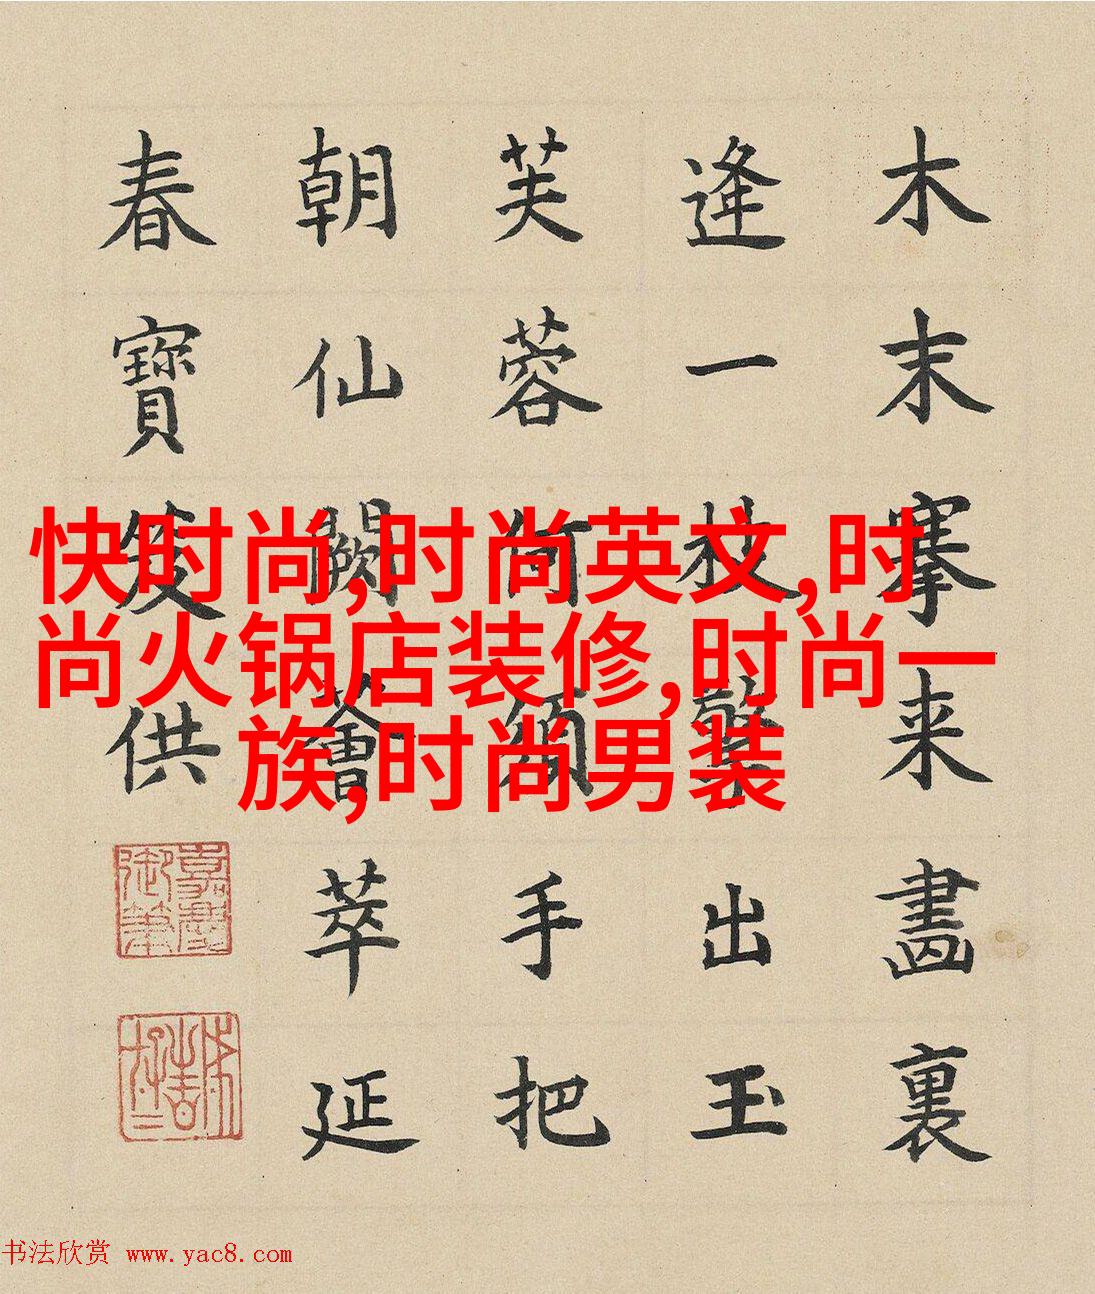 木末搴来畫裏
逢一枝擎出玉
芙蓉何須手把
朝仙闕薈萃延
春寳笈供
嘉慶御筆
快时尚,时尚英文,时
尚火锅店装修,时尚一
族,时尚男装
书法欣赏 www.yac8.com